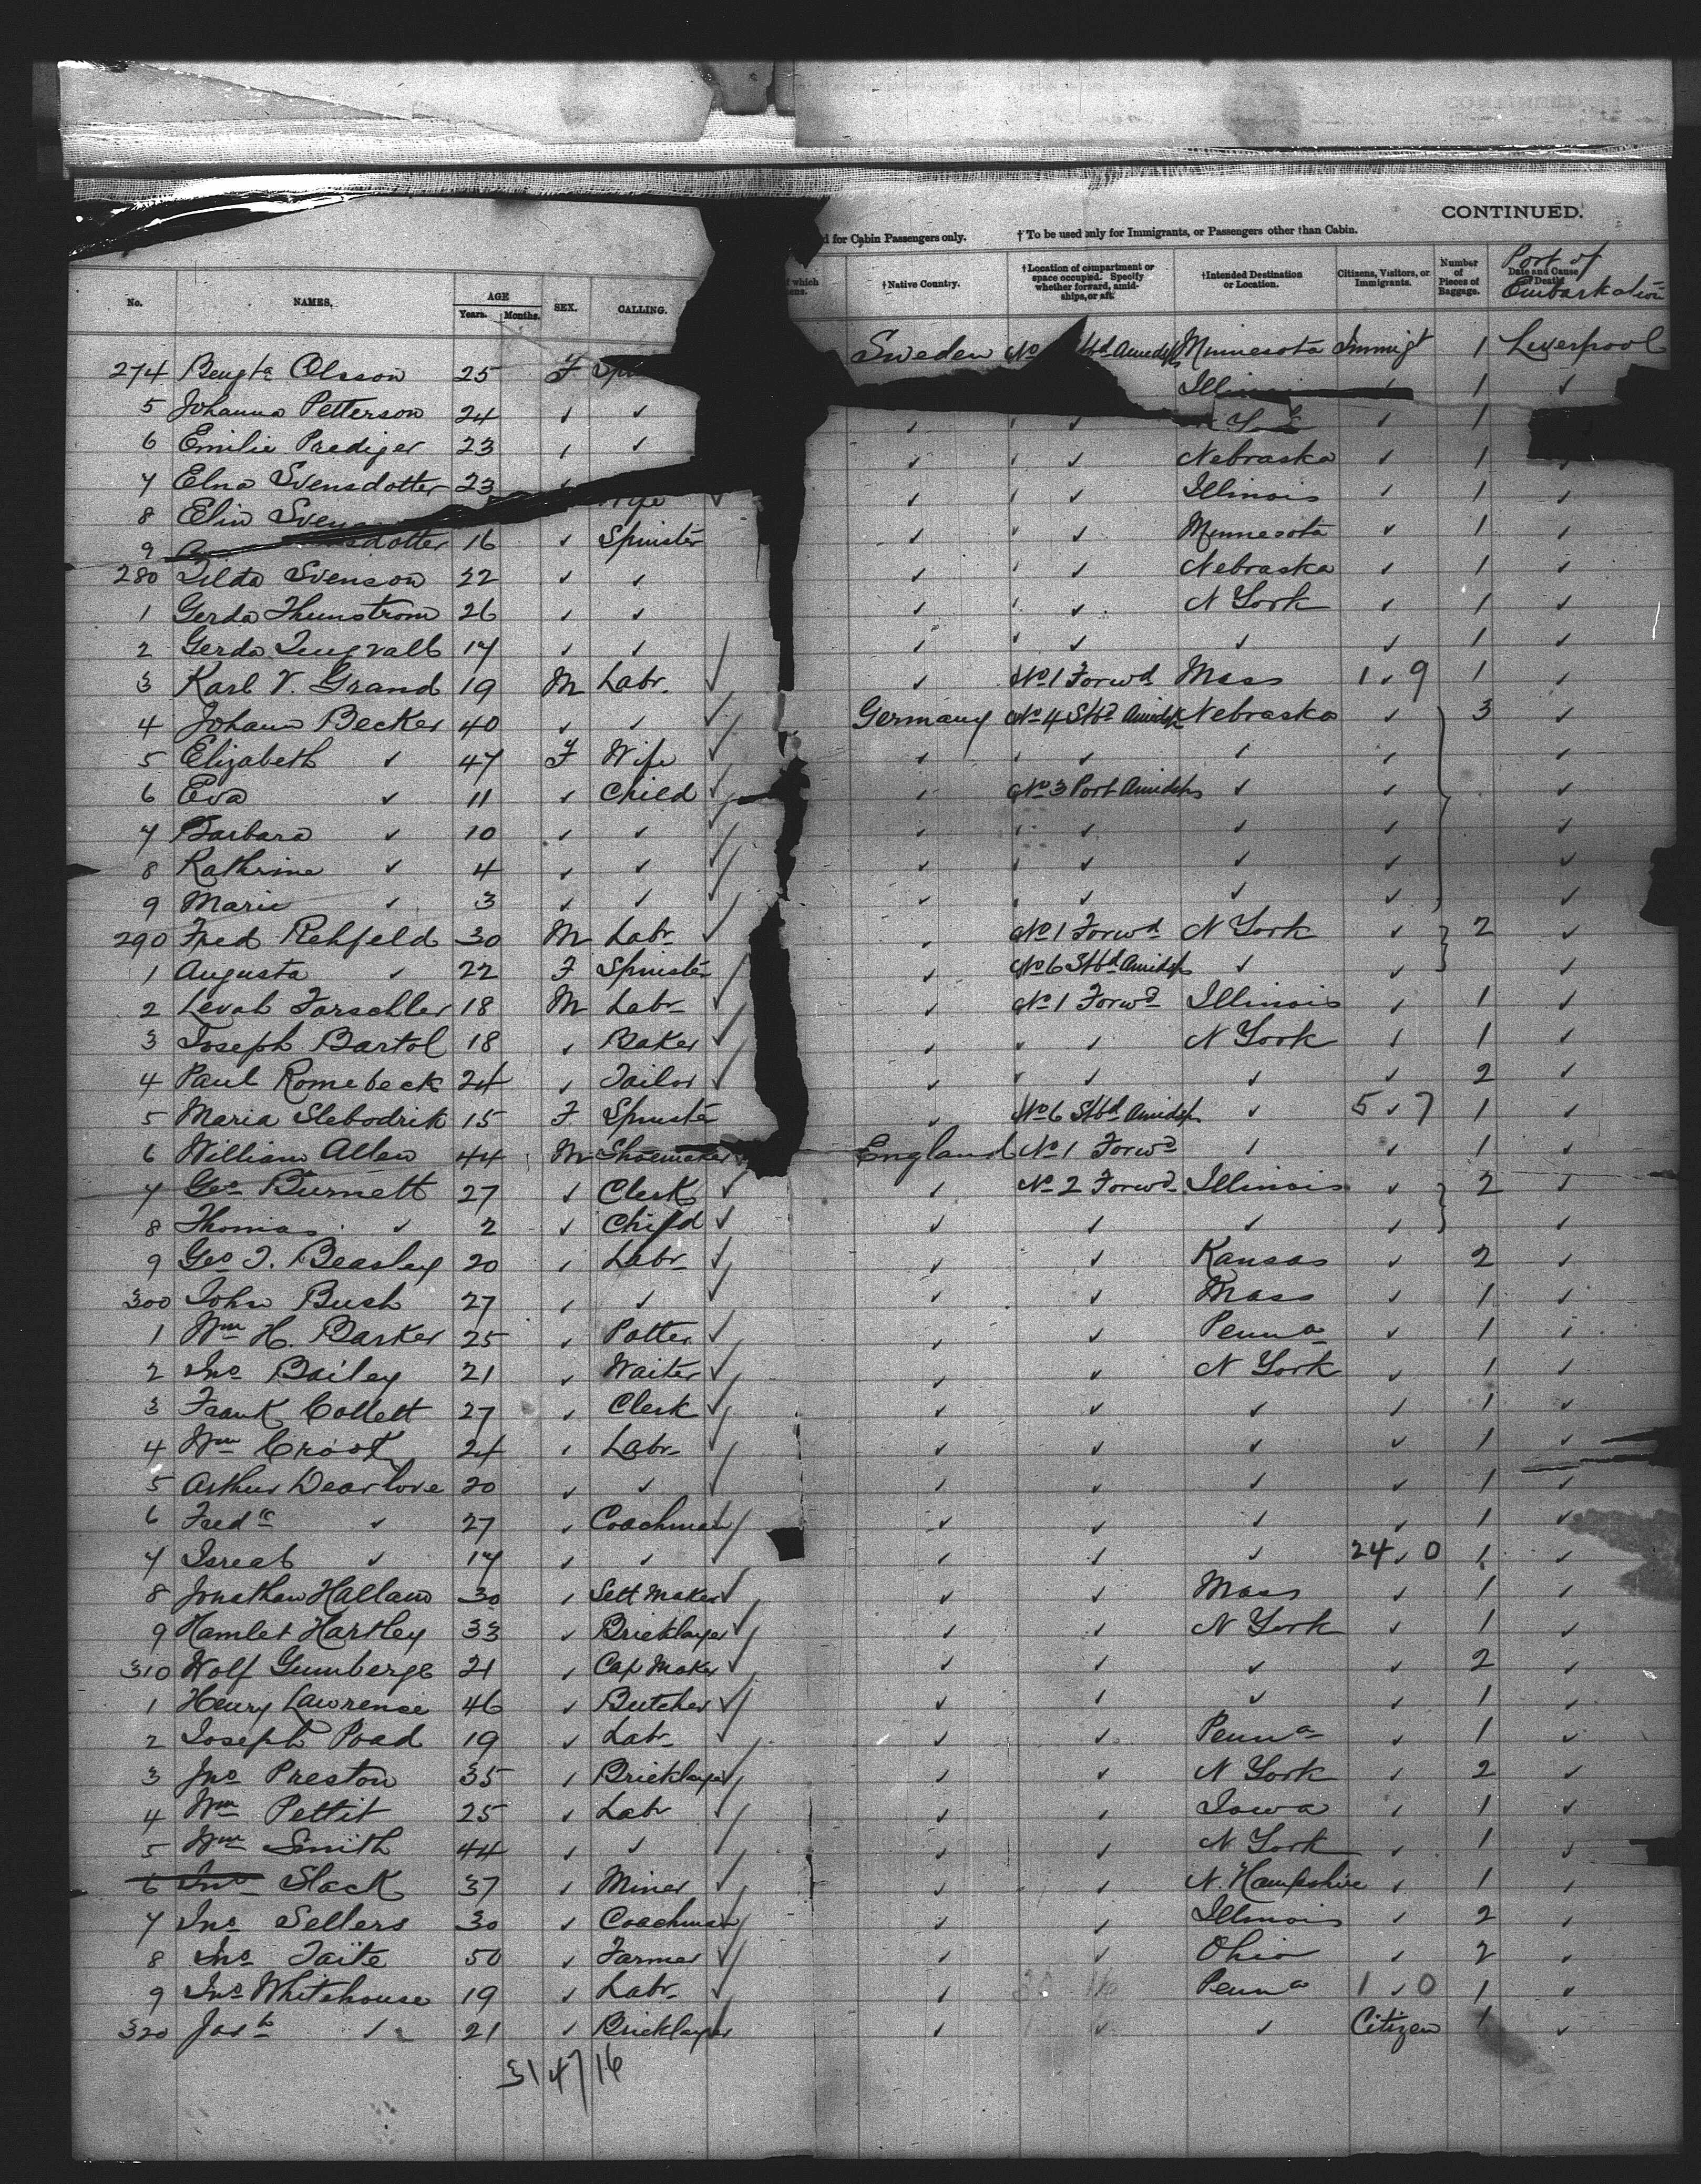 CONTINUED.
d for Cabin Passengers only. † To be used only for Immigrants, or Passengers other than Cabin.
No. NAMES. AGE Years. Months. SEX. CALLING. †Native Country. †Location of compartment or space occupied. Specify whether forward, amidships, or aft. †Intended Destination or Location. Citizens, Visitors, or Immigrants. Number of Pieces of Baggage. Date and Cause of Death. Port of Embarkation
274 Bengta Olsson 25 F Sweden No Stbd Amidsps Minnesota Immigt 1 Liverpool
5 Johanna Petterson 24 ✓ ✓ Illinois ✓ 1 ✓
6 Emilie Prediger 23 ✓ ✓ ✓ ✓ ✓ N York ✓ 1
7 Elna Svensdotter 23 ✓ ✓ ✓ ✓ Nebraska ✓ 1 ✓
8 Elin Wife ✓ ✓ ✓ ✓ Illinois ✓ 1 ✓
9 sdotter 16 ✓ Spinster ✓ ✓ ✓ Minnesota ✓ 1 ✓
280 Tilda Svenson 22 ✓ ✓ ✓ ✓ ✓ Nebraska ✓ 1 ✓
1 Gerda Thunstrom 26 ✓ ✓ ✓ ✓ ✓ N York ✓ 1 ✓
2 Gerda Tengvall 17 ✓ ✓ ✓ ✓ ✓ ✓ ✓ 1 ✓
3 Karl V. Grand 19 M Labr. ✓ ✓ No 1 Forwd Mass 1 ✓ 9 1 ✓
4 Johann Becker 40 ✓ ✓ ✓ Germany No 4 Stbd Amidsps Nebraska ✓ 3 ✓
5 Elizabeth ✓ 47 F Wife ✓ ✓ ✓ ✓ ✓ ✓ ✓
6 Eva ✓ 11 ✓ Child ✓ ✓ No 3 Port Amidsps ✓ ✓ ✓
7 Barbara ✓ 10 ✓ ✓ ✓ ✓ ✓ ✓ ✓ ✓ ✓
8 Kathrine ✓ 4 ✓ ✓ ✓ ✓ ✓ ✓ ✓ ✓ ✓
9 Marie ✓ 3 ✓ ✓ ✓ ✓ ✓ ✓ ✓ ✓ ✓
290 Fred Rehfeld 30 M Labr ✓ ✓ No 1 Forwd N York ✓ 2 ✓
1 Augusta ✓ 22 F Spinster ✓ No 6 Stbd Amidsps ✓ ✓ ✓
2 Farschler 18 M Labr ✓ ✓ No 1 Forwd Illinois ✓ 1 ✓
3 Joseph Bartol 18 ✓ Baker ✓ ✓ ✓ ✓ N York ✓ 1 ✓
4 Paul Romebeck 24 ✓ Tailor ✓ ✓ ✓ ✓ ✓ ✓ 2 ✓
5 Maria Slebodrik 15 F Spinster ✓ No 6 Stbd Amidsps ✓ 5 ✓ 7 1 ✓
6 William Allen 44 M Shoemaker England No 1 Forwd ✓ ✓ 1 ✓
7 Geo Burnett 27 ✓ Clerk ✓ ✓ No 2 Forwd Illinois ✓ 2 ✓
8 Thomas ✓ 2 ✓ Child ✓ ✓ ✓ ✓ ✓ ✓
9 Geo T. Beasley 20 ✓ Labr ✓ ✓ ✓ Kansas ✓ 2 ✓
300 John Bush 27 ✓ ✓ ✓ ✓ ✓ Mass ✓ 1 ✓
1 Wm H. Barker 25 ✓ Potter ✓ ✓ ✓ Penna ✓ 1 ✓
2 Jno Bailey 21 ✓ Waiter ✓ ✓ ✓ N York ✓ 1 ✓
3 Frank Collett 27 ✓ Clerk ✓ ✓ ✓ ✓ ✓ 1 ✓
4 Wm Croot 24 ✓ Labr ✓ ✓ ✓ ✓ ✓ 1 ✓
5 Arthur Dearlove 20 ✓ ✓ ✓ ✓ ✓ ✓ ✓ 1 ✓
6 Fredc ✓ 27 ✓ Coachman ✓ ✓ ✓ ✓ ✓ 1 ✓
7 Isreal ✓ 17 ✓ ✓ ✓ ✓ ✓ ✓ 24 ✓ 0 1 ✓
8 Jonathan Hallam 30 ✓ Sett Maker ✓ ✓ ✓ Mass ✓ 1 ✓
9 Hamlet Hartley 33 ✓ Bricklayer ✓ ✓ ✓ N York ✓ 1 ✓
310 Wolf Gumberge 21 ✓ Cap Maker ✓ ✓ ✓ ✓ ✓ 2 ✓
1 Henry Lawrence 46 ✓ Butcher ✓ ✓ ✓ ✓ ✓ 1 ✓
2 Joseph Poad 19 ✓ Labr ✓ ✓ ✓ Penna ✓ 1 ✓
3 Jno Preston 35 ✓ Bricklayer ✓ ✓ ✓ N York ✓ 2 ✓
4 Wm Pettit 25 ✓ Labr ✓ ✓ ✓ Iowa ✓ 1 ✓
5 Wm Smith 44 ✓ ✓ ✓ ✓ ✓ N York ✓ 1 ✓
6 Jno Slack 37 ✓ Miner ✓ ✓ ✓ N. Hampshire ✓ 1 ✓
7 Jno Sellers 30 ✓ Coachman ✓ ✓ ✓ Illinois ✓ 2 ✓
8 Jno Taite 50 ✓ Farmer ✓ ✓ ✓ Ohio ✓ 2 ✓
9 Jno Whitehouse 19 ✓ Labr ✓ ✓ Penna 1 ✓ 0 1 ✓
320 Josh ✓ 21 ✓ Bricklayer ✓ ✓ ✓ ✓ Citizen 1 ✓
31/47/16